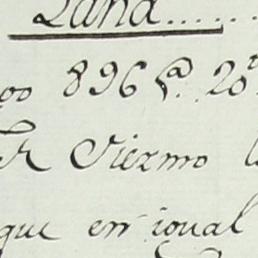 Lana......
oo 896 @. 20
R Diezmo
que en igual